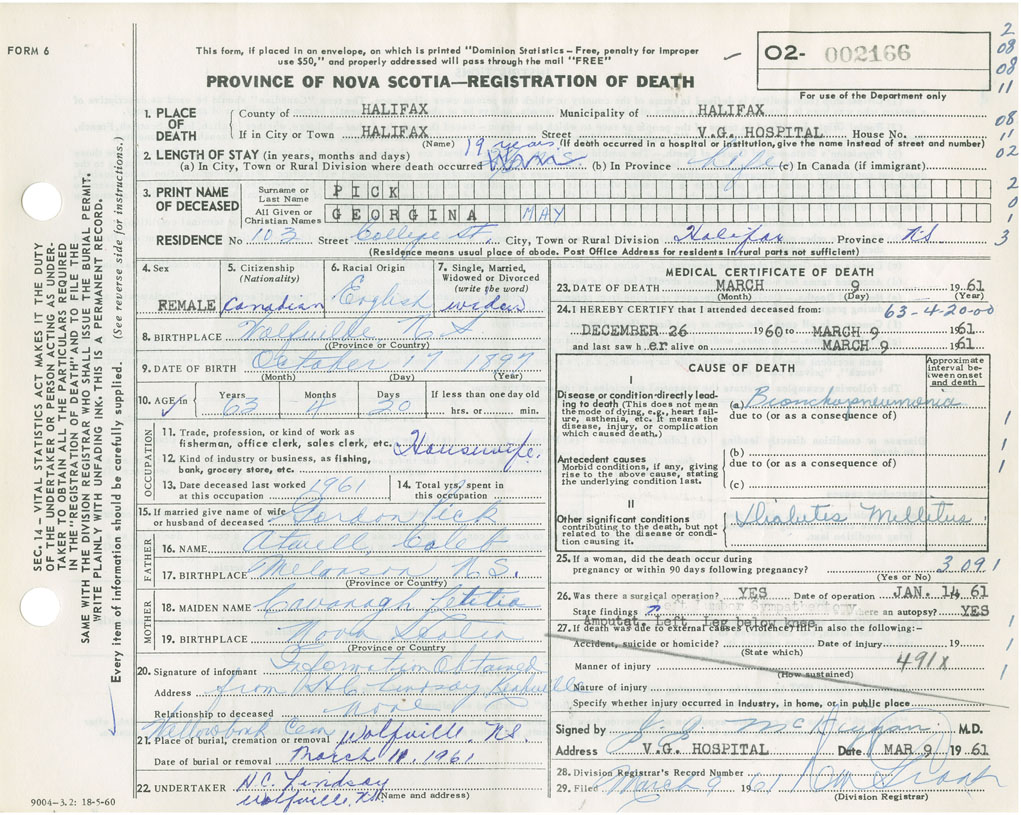 FORM 6
This form, if placed in an envelope, on which is printed "Dominion Statistics – Free, penalty for improper
use $50," and properly addressed will pass through the mail "FREE"
PROVINCE OF NOVA SCOTIA—REGISTRATION OF DEATH
O2- 002166
For use of the Department only
2
08
08
11
08
11
02
2
0
1
3
1. PLACE OF DEATH
County of HALIFAX Municipality of HALIFAX
If in City or Town HALIFAX Street V.G. HOSPITAL House No.
(Name) (If death occurred in a hospital or institution, give the name instead of street and number)
2. LENGTH OF STAY (in years, months and days) 19 years
(a) In City, Town or Rural Division where death occurred (b) In Province Life (c) In Canada (if immigrant)
3. PRINT NAME OF DECEASED
Surname or Last Name PICK
All Given or Christian Names GEORGINA MAY
RESIDENCE No 103 Street College St. City, Town or Rural Division Halifax Province NS
(Residence means usual place of abode. Post Office Address for residents in rural parts not sufficient)
4. Sex REMALE
5. Citizenship (Nationality) Canadian
6. Racial Origin English
7. Single, Married, Widowed or Divorced (write the word) widow
8. BIRTHPLACE Wolfville N S
(Province or Country)
9. DATE OF BIRTH October 17 1897
(Month) (Day) (Year)
10. AGE in Years 63 Months 4 Days 20 If less than one day old hrs. or min.
OCCUPATION
11. Trade, profession or kind of work as
fisherman, office clerk, sales clerk, etc. Housewife.
12. Kind of industry or business, as fishing,
bank, grocery store, etc.
13. Date deceased last worked at this occupation 1961
14. Total yrs. spent in this occupation
15. If married give name of wife
or husband of deceased Gordon Pick
FATHER
16. NAME Atwell, Caleb
17. BIRTHPLACE Melanson N.S.
(Province or Country)
MOTHER
18. MAIDEN NAME Cavanagh Letitia
19. BIRTHPLACE Nova Scotia
(Province or Country
20. Signature of informant Information Obtained
Address from H.C. Lindsay Kentville
Relationship to deceased None
Willowbank Cem
21. Place of burial, cremation or removal Wolfville, N.S.
Date of burial or removal March 11, 1961
22. UNDERTAKER H.C. Lindsay
Wolfville, NS (Name and address)
9004–3.2: 18-5-60
MEDICAL CERTIFICATE OF DEATH
23. DATE OF DEATH MARCH 9 1961
(Month) (Day) (Year)
24. I HEREBY CERTIFY that I attended deceased from: 63-4-20-00
DECEMBER 26 1960 to MARCH 9 1961
and last saw her alive on MARCH 9 1961
CAUSE OF DEATH
Approximate interval between onset and death
I
Disease or condition directly leading to death (This does not mean the mode of dying, e.g., heart failure, asthenia, etc. It means the disease, injury, or complication which caused death.)
(a) Bronchopneumonia
due to (or as a consequence of)
Antecedent causes
Morbid conditions, if any, giving rise to the above cause, stating the underlying condition last.
(b)
due to (or as a consequence of)
(c)
II
Other significant conditions
contributing to the death, but not related to the disease or condition causing it.
Diabetes Mellitus
1
1
1
1
25. If a woman, did the death occur during
pregnancy or within 90 days following pregnancy? 3091
(Yes or No)
26. Was there a surgical operation? YES Date of operation JAN. 14 61
State findings Was there an autopsy? YES
Amputat. Left Leg below knee
27. If death was due to external causes (violence) fill in also the following:–
Accident, suicide or homicide? Date of injury 19
(State which)
Manner of injury 491X
(How sustained)
Nature of injury
Specify whether injury occurred in industry, in home, or in public place
1
1
1
Signed by M.D.
Address V.G. HOSPITAL Date MAR 9 1961
28. Division Registrar's Record Number
29. Filed March 9 1961
(Division Registrar)
SEC. 14 – VITAL STATISTICS ACT MAKES IT THE DUTY
OF THE UNDERTAKER OR PERSON ACTING AS UNDER-
TAKER TO OBTAIN ALL THE PARTICULARS REQUIRED
IN THE "REGISTRATION OF DEATH" AND TO FILE THE
SAME WITH THE DIVISION REGISTRAR WHO SHALL ISSUE THE BURIAL PERMIT.
WRITE PLAINLY WITH UNFADING INK. THIS IS A PERMANENT RECORD.
Every item of information should be carefully supplied. (See reverse side for instructions.)